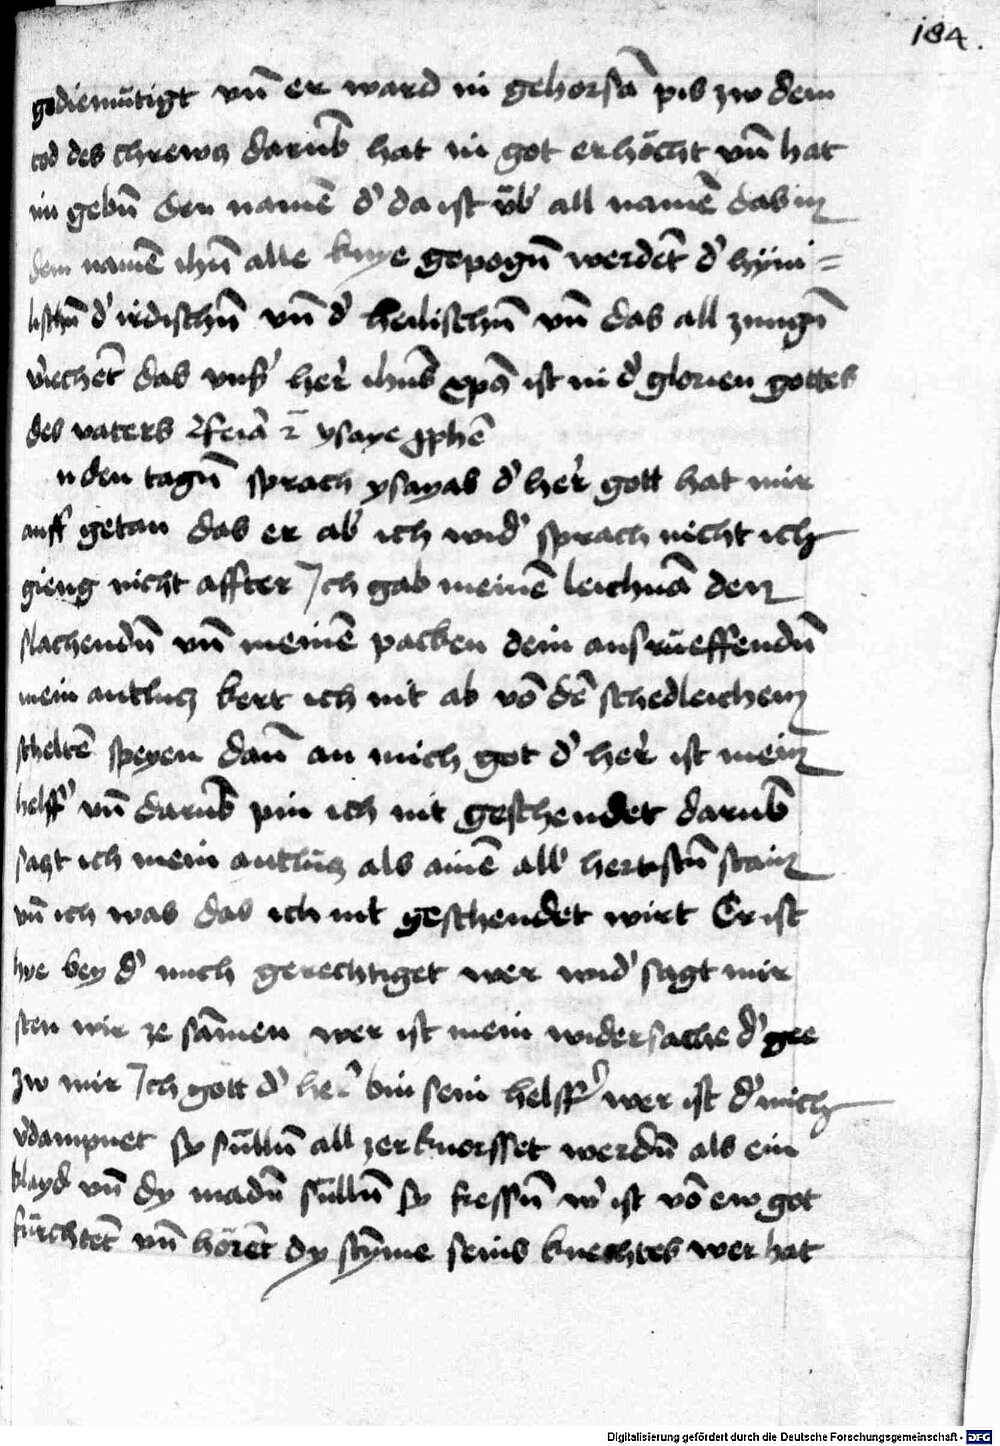 184.
gediemütigt vn̄ er ward in gehorsā pis zw dem
tod des chrewcz darub̄ hat in got erhöcht vn̄ hat
im gebn̄ den namē d' da ist üb' all namē das in
dem namē ihū alle knye gepogn̄ werdēt d' hÿmi=
lischn̄ d' irdischn̄ vn̄ d' hellischn̄ vn̄ das all zungn̄
v'iechēt das vnß' her' ihūs xpās ist in d' glorien gottes
des vaters 2 feriā ysaye pphē
n den tagn̄ sprach ysayas d' her' gott hat mir
auff getan das or ab' ich wid' sprach nicht ich
gieng nicht affter Ich gab meinē leichnā den
slachendn̄ vn̄ meinē packen dem ausrüeffendn̄
mein antlucz kert ich nit ab vō dē schedleichem
scheltē speyen dan̄ an mich got d' her' ist mein
helff' vn̄ darub̄ pin ich nit geschendet darub̄
sagt ich mein antlücz als ainē all' hertistn̄ stain
vn̄ ich was das ich nit geschendet wirt Er ist
hye bey d' mich gerechtiget wer wid' sagt mir
sten wir ze sāmen wer ist mein widersache d' gee
zw mir Ich gott d' her' bin sein helff' wer ist d' mich
v'dampnet sy süllen all zerknorsset werdn̄ als ein
klayd vn̄ dy madn̄ süllen sy fressn̄ w' ist vō ew got
fürchtēt vn̄ hörēt dy stȳme seins knechtes wer hat
Digitalisierung gefördert durch die Deutsche Forschungsgemeinschaft - DFG